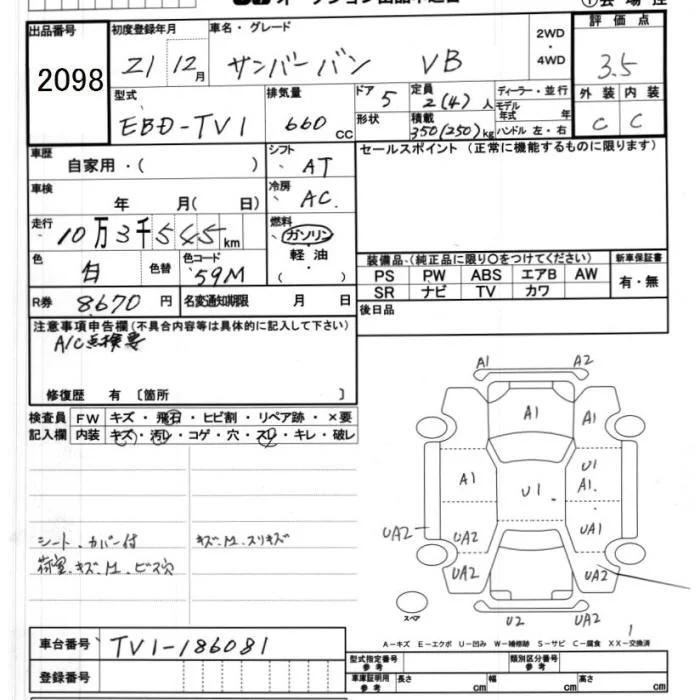 出品番号
2098
初度登録年月
21 12月
車名・グレード
サンバーバン VB
2WD
・
4WD
評価点
3.5
外装 内装
C C
型式
EBD-TV1
排気量
660 CC
ドア 5
形状
定員 2(4)人
積載 350(250)kg
ディーラー・並行
モデル年式 年
ハンドル 左・右
車歴
自家用・( )
車検
年 月( 日)
走行
10万3千545km
色
白
色替
色コード
59M
R券 8,670円
名変通知期限 月 日
シフト
AT
冷房
AC
燃料
ガソリン
軽油・
( )
セールスポイント(正常に機能するものに限ります)
装備品(純正品に限り○をつけてください)
PS PW ABS エアB AW
SR ナビ TV カワ
新車保証書
有・無
後日品
注意事項申告欄(不具合内容等は具体的に記入して下さい)
A/C点検要
修復歴 有 〔箇所 〕
検査員記入欄
FW キズ・飛石・ヒビ割・リペア跡・×要
内装 キズ・汚レ・コゲ・穴・スレ・キレ・破レ
シート、カバー付
キズ、M、スリキズ
荷室、キズ、M、ビス穴
A1 A2
A1 A1
A1 U1 U1
A1
UA2 UA2 UA1
UA2 UA2
U2 UA2
スペア
1
A-キズ E-エクボ U-凹み W-補修跡 S-サビ C-腐食 XX-交換済
車台番号 TV1-186081
登録番号
型式指定番号参考
類別区分番号参考
車庫証明用参考
長さ cm 幅 cm 高さ cm